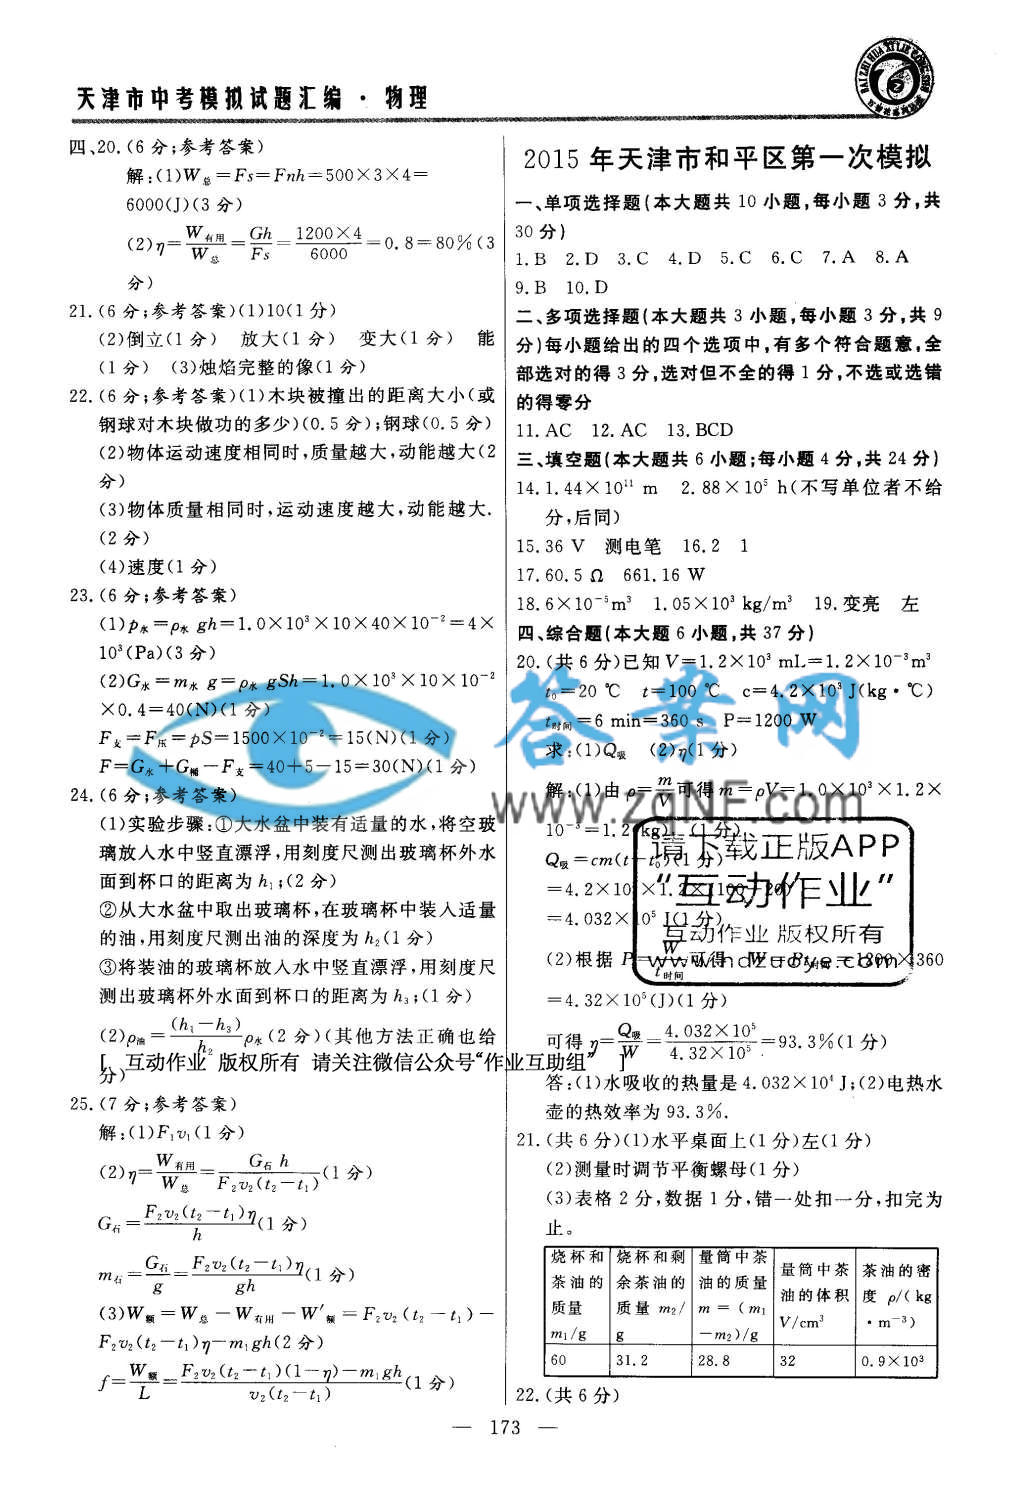 天津市中考模拟试题汇编·物理
四、20.(6分;参考答案)
解:(1)W总=Fs=Fnh=500×3×4=
6000(J)(3分)
(2)η=W有用/W总=Gh/Fs=1200×4/6000=0.8=80%(3
分)
21.(6分;参考答案)(1)10(1分)
(2)倒立(1分) 放大(1分) 变大(1分) 能
(1分) (3)烛焰完整的像(1分)
22.(6分;参考答案)(1)木块被撞出的距离大小(或
钢球对木块做功的多少)(0.5分);钢球(0.5分)
(2)物体运动速度相同时,质量越大,动能越大(2
分)
(3)物体质量相同时,运动速度越大,动能越大.
(2分)
(4)速度(1分)
23.(6分;参考答案)
(1)p水=ρ水gh=1.0×10³×10×40×10⁻²=4×
10³(Pa)(3分)
(2)G水=m水g=ρ水gSh=1.0×10³×10×10⁻²
×0.4=40(N)(1分)
F支=F压=pS=1500×10⁻²=15(N)(1分)
F=G水+G桶-F支=40+5-15=30(N)(1分)
24.(6分;参考答案)
(1)实验步骤:①大水盆中装有适量的水,将空玻
璃放入水中竖直漂浮,用刻度尺测出玻璃杯外水
面到杯口的距离为h₁;(2分)
②从大水盆中取出玻璃杯,在玻璃杯中装入适量
的油,用刻度尺测出油的深度为h₂(1分)
③将装油的玻璃杯放入水中竖直漂浮,用刻度尺
测出玻璃杯外水面到杯口的距离为h₃;(1分)
(2)ρ油=(h₁-h₃)/h₂ρ水(2分)(其他方法正确也给
分)
[ 互动作业 版权所有 请关注微信公众号“作业互助组” ]
25.(7分;参考答案)
解:(1)F₁v₁(1分)
(2)η=W有用/W总=G石h/F₂v₂(t₂-t₁)(1分)
G石=F₂v₂(t₂-t₁)η/h(1分)
m石=G石/g=F₂v₂(t₂-t₁)η/gh(1分)
(3)W额=W总-W有用-W′额=F₂v₂(t₂-t₁)-
F₂v₂(t₂-t₁)η-m₁gh(2分)
f=W额/L=F₂v₂(t₂-t₁)(1-η)-m₁gh/v₂(t₂-t₁)(1分)
2015年天津市和平区第一次模拟
一、单项选择题(本大题共10小题,每小题3分,共
30分)
1.B 2.D 3.C 4.D 5.C 6.C 7.A 8.A
9.B 10.D
二、多项选择题(本大题共3小题,每小题3分,共9
分)每小题给出的四个选项中,有多个符合题意,全
部选对的得3分,选对但不全的得1分,不选或选错
的得零分
11.AC 12.AC 13.BCD
三、填空题(本大题共6小题;每小题4分,共24分)
14.1.44×10¹¹ m 2.88×10⁵ h(不写单位者不给
分,后同)
15.36 V 测电笔 16.2 1
17.60.5 Ω 661.16 W
18.6×10⁻⁵m³ 1.05×10³ kg/m³ 19.变亮 左
四、综合题(本大题6小题,共37分)
20.(共6分)已知V=1.2×10³ mL=1.2×10⁻³m³
t₀=20 ℃ t=100 ℃ c=4.2×10³ J(kg·℃)
t时间=6 min=360 s P=1200 W
求:(1)Q吸 (2)η(1分)
解:(1)由ρ=m/V可得m=ρV=1.0×10³×1.2×
10⁻³=1.2(kg) (1分)
Q吸=cm(t-t₀)(1分)
=4.2×10³×1.2×(100-20)
=4.032×10⁵ J(1分)
(2)根据P=W/t时间可得 W=Pt时间=1200×360
=4.32×10⁵(J)(1分)
可得η=Q吸/W=4.032×10⁵/4.32×10⁵=93.3%(1分)
答:(1)水吸收的热量是4.032×10⁴ J;(2)电热水
壶的热效率为93.3%.
21.(共6分)(1)水平桌面上(1分)左(1分)
(2)测量时调节平衡螺母(1分)
(3)表格2分,数据1分,错一处扣一分,扣完为
止。
烧杯和茶油的质量m₁/g 烧杯和剩余茶油的质量m₂/g 量筒中茶油的质量m=(m₁-m₂)/g 量筒中茶油的体积V/cm³ 茶油的密度ρ/(kg·m⁻³)
60 31.2 28.8 32 0.9×10³
22.(共6分)
答案网
www.zqNF.com
请下载正版APP
“互动作业”
互动作业 版权所有
www.hdzuoye.com
— 173 —